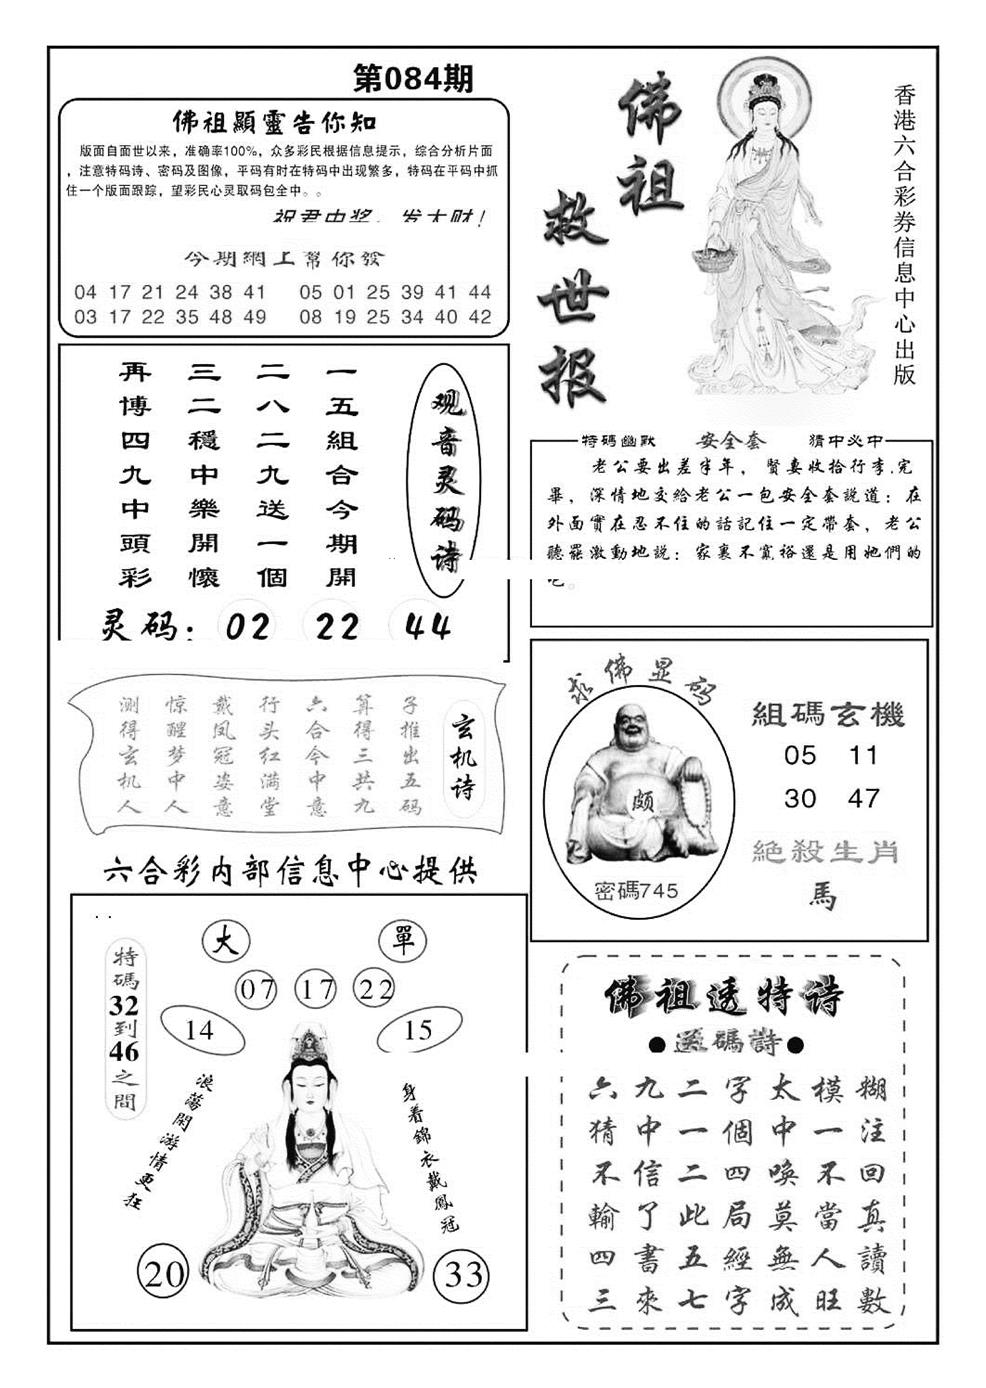 第084期
佛祖顯靈告你知
版面自面世以来，准确率100%，众多彩民根据信息提示，综合分析片面
，注意特码诗、密码及图像，平码有时在特码中出现繁多，特码在平码中抓
住一个版面跟踪，望彩民心灵取码包全中。。
祝君中奖，发大财！
今期網上幫你發
04 17 21 24 38 41 05 01 25 39 41 44
03 17 22 35 48 49 08 19 25 34 40 42
佛祖
救世报
香港六合彩券信息中心出版
观音灵码诗
一五組合今期開
二八二九送一個
三二穩中樂開懷
再博四九中頭彩
灵码：02 22 44
特碼幽默 安全套 猜中必中
老公要出差半年，賢妻收拾行李.完
畢，深情地交給老公一包安全套說道：在
外面實在忍不住的話記住一定帶套，老公
聽罷激動地説：家裏不寬裕還是用她們的
吧。
玄机诗
子推出五码
算得三共九
六合今中意
行头红满堂
戴凤冠姿意
惊醒梦中人
测得玄机人
六合彩内部信息中心提供
求佛显码
頗
密碼745
組碼玄機
05 11
30 47
絕殺生肖
馬
大 單
07 17 22
14 15
特碼32到46之間
浪蕩閑游情更狂
身着錦衣戴鳳冠
20 33
佛祖透特诗
●送碼詩●
六九二字太模糊
猜中一個中一注
不信二四喚不回
輸了此局莫當真
四書五經無人讀
三來七字成旺數